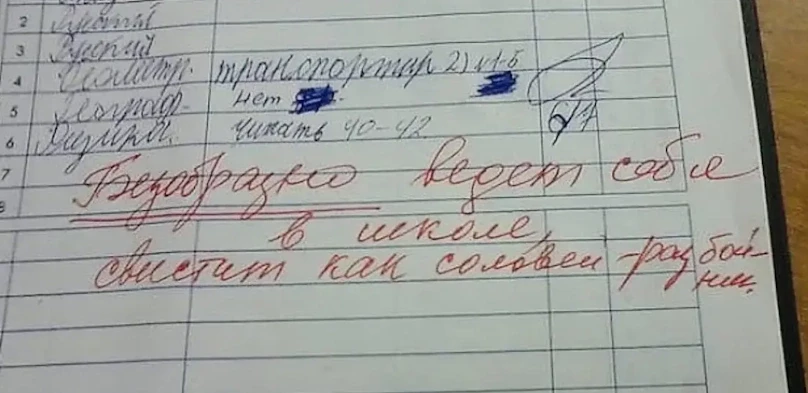 2 Русский
3 Русский
4 Геометр. транспортир 2)
5 Географ. нет
6 Физика. Читать 40-42
7 Безобразно ведет себя
8 в школе,
свистит как соловей-разбой-
ник.